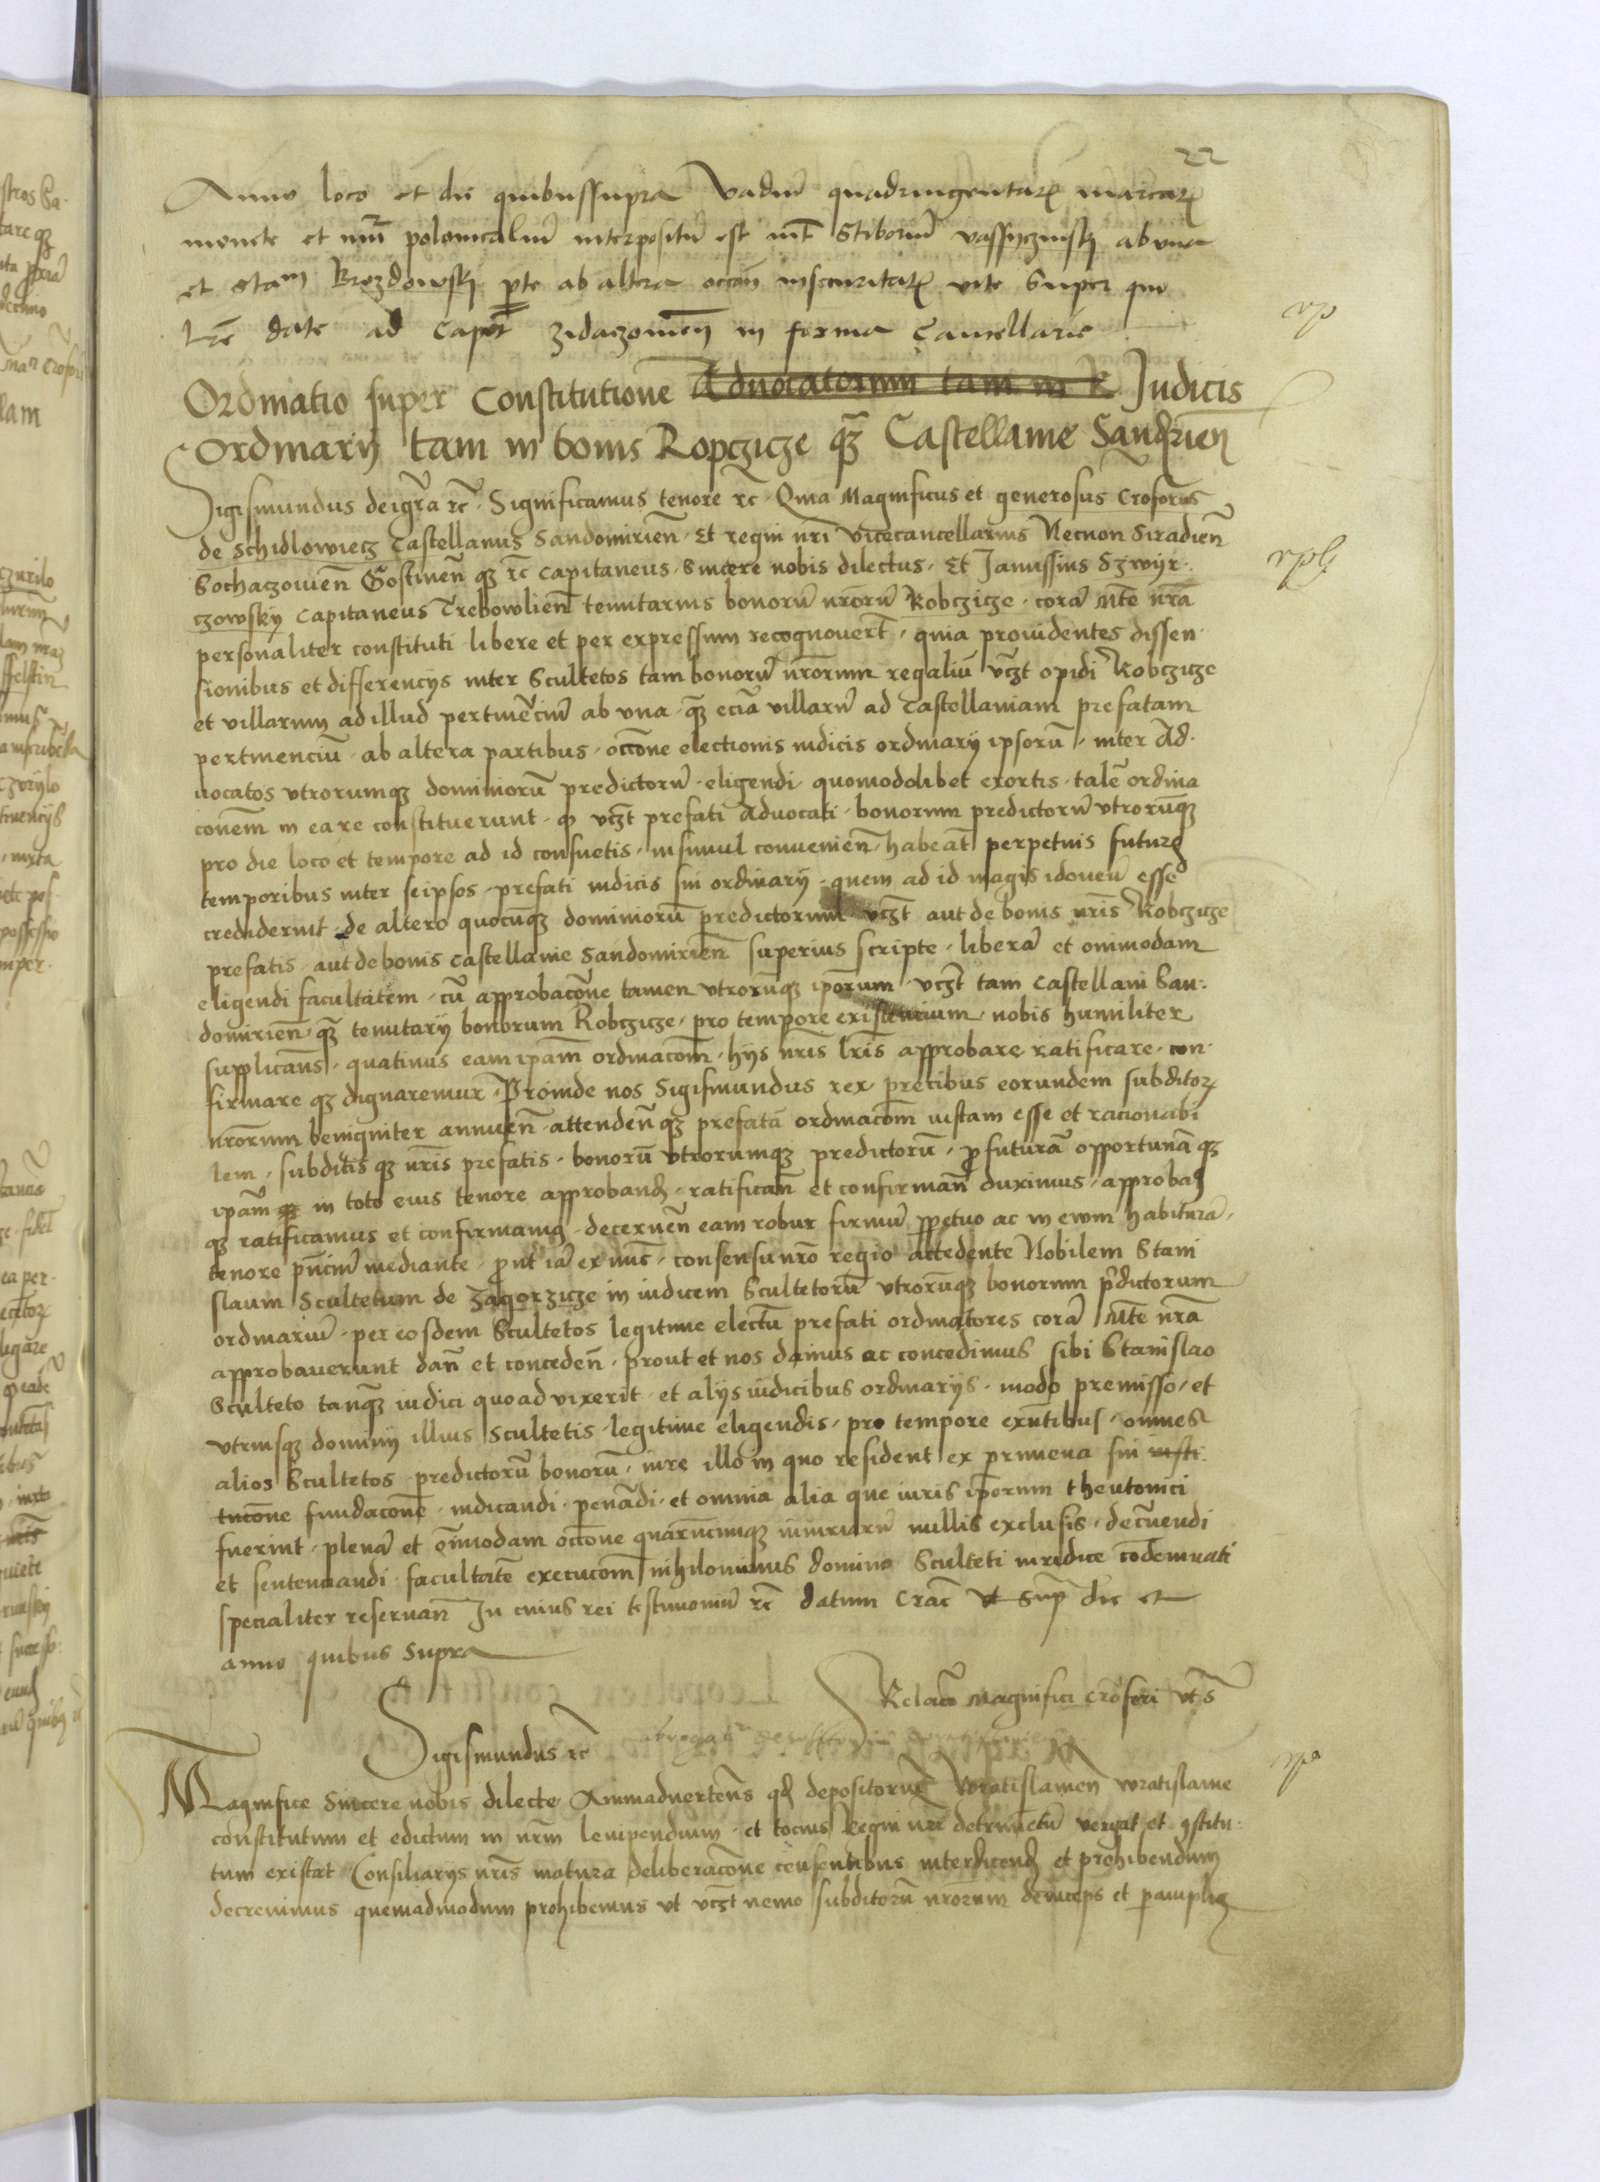 22
Anno loco et die quibussupra Vadiũ quadringentarꝫ marcarꝫ
monete et nũi polonicaliũ interpositũ est int̃ Stiboriũ ab una
et Stañ Brozdowskj pte ab altera occõn insecuritatꝫ vite Super quo
lr̃e date ad Capt̃ in forma Cancellarie
Ordinatio super Constitutione Advocatorum tam in R Judicis
Ordinarij tam in bonis Ropczicze qꝫ Castellanie Sandrieñ
Sigismundus deigr̃a rc̃ · Significamus tenore rc̃ · Quia Magnificus et generosus Croforus
de Schidlowiecz Castellanus Sandomirieñ · Et regni nr̃i Vicecancellarius Necnon Siradieñ
Sochaczovieñ Gostineñ qꝫ rc̃ Capitaneus · Sincere nobis dilectus · Et Janussius Szwyr·
czowsky Capitaneus Trebowlieñ tenutarius bonorũ nr̃orũ Robczicze · corã Mte nr̃a
personaliter constituti libere et per expressum recognovert̃ · quia providentes dissen·
sionibus et differencijs inter Scultetos tam bonorũ nr̃orum regaliũ vcꝫt opidi Robczicze
et villarum ad illud pertinẽciũ ab una · qꝫ eciã villarũ ad Castellaniam prefatam
pertinenciũ · ab altera partibus · occõne electionis iudicis ordinarij ipsorũ · inter Ad·
vocatos utrorumqꝫ dominiorũ predictorũ · eligendi quomodolibet exortis · talẽ ordina
cõnem in ea re constituerunt · qꝫ vcꝫt prefati Advocati · bonorum predictorũ utrorũqꝫ
pro die loco et tempore ad id consuetis · insimul convenieñ · habeãt perpetuis futurꝫ
temporibus inter seipsos · prefati iudicis sui ordinarij · quem ad id magis idoneũ esse
crediderint · de altero quocũqꝫ dominiorũ predictorum vcꝫt aut de bonis nr̃is Robczicze
prefatis · aut de bonis Castellanie Sandomirieñ superius scripte · liberã et omnimodam
eligendi facultatem · cũ approbacõne tamen utrorũqꝫ ip̃orum · vcꝫt tam Castellani San·
domirieñ · qꝫ tenutarij bonorum Robczicze · pro tempore existencium · nobis humiliter
supplicañs · quatinus eam ip̃am ordinacõm · hijs nr̃is lr̃is approbare ratificare · con·
firmare qꝫ dignaremur · Proinde nos Sigismundus rex precibus eorundem subditorꝫ
nr̃orum benigniter annueñ · attendeñ qꝫ prefatã ordinacõm iustam esse et racionabi
lem · subditis qꝫ nr̃is prefatis · bonorũ utrorumqꝫ predictorũ · profuturã opportunã qꝫ
ip̃am in toto eius tenore approbandꝫ · ratificañ et confirmañ duximus · approbaꝫ
qꝫ ratificamus et confirmamꝫ · decerneñ eam robur firmũ ppetuo ac in ewm habiturã ·
tenore pñciũ mediante · prout iã ex nũc · consensu nr̃o regio accedente Nobilem Stani
slaum Scultetum de Zagorzicze in iudicem Scultetorũ utrorũqꝫ bonorum p̃dictorum
ordinariũ · per eosdem Scultetos legitime electũ prefati ordinatores corã Mte nr̃a
approbaverunt dañ et concedeñ · prout et nos damus ac concedimus sibi Stanislao
Sculteto tanqꝫ iudici quoad vixerit · et alijs iudicibus ordinarijs · modo premisso / et
utriusqꝫ dominij illius Scultetis · legitime eligendis · pro tempore exñtibus · omnes
alios Scultetos predictorũ bonorũ · iure illo in quo resident ex primeva sui insti·
tucõne fundacõne · iudicandi · penãdi · et omnia alia que iuris ip̃orum theutonici
fuerint · plenã et oĩmodam occõne quarũcunqꝫ iniuriarũ nullis exclusis · decr̃nendi
et sentenciandi · facultatẽ execucõm nihilominus domino Sculteti iuridice cõdemnati
specialiter reservañ In cuius rei testimoniũ rc̃ datum Crac̃ ut sup̃ die et
anno quibus supra
Relacio Magnifici Crofori ut s̃
Sigismundus rc̃
Magnifice Sincere nobis dilecte Animadverteñs qꝫ depositoriũ Wratislaueñ Wratislauie
constitutum et edictum in nr̃m leuipendium · et tocius Regni nr̃i detrimẽtũ vergat et ꝯstitu·
tum existat Consiliarijs nr̃is matura deliberacõne cõsentibus interdicendꝫ et prohibendum
decrevimus quemadmodum prohibemus ut vcꝫt nemo subditorũ nr̃orum deinceps et pampliꝫ